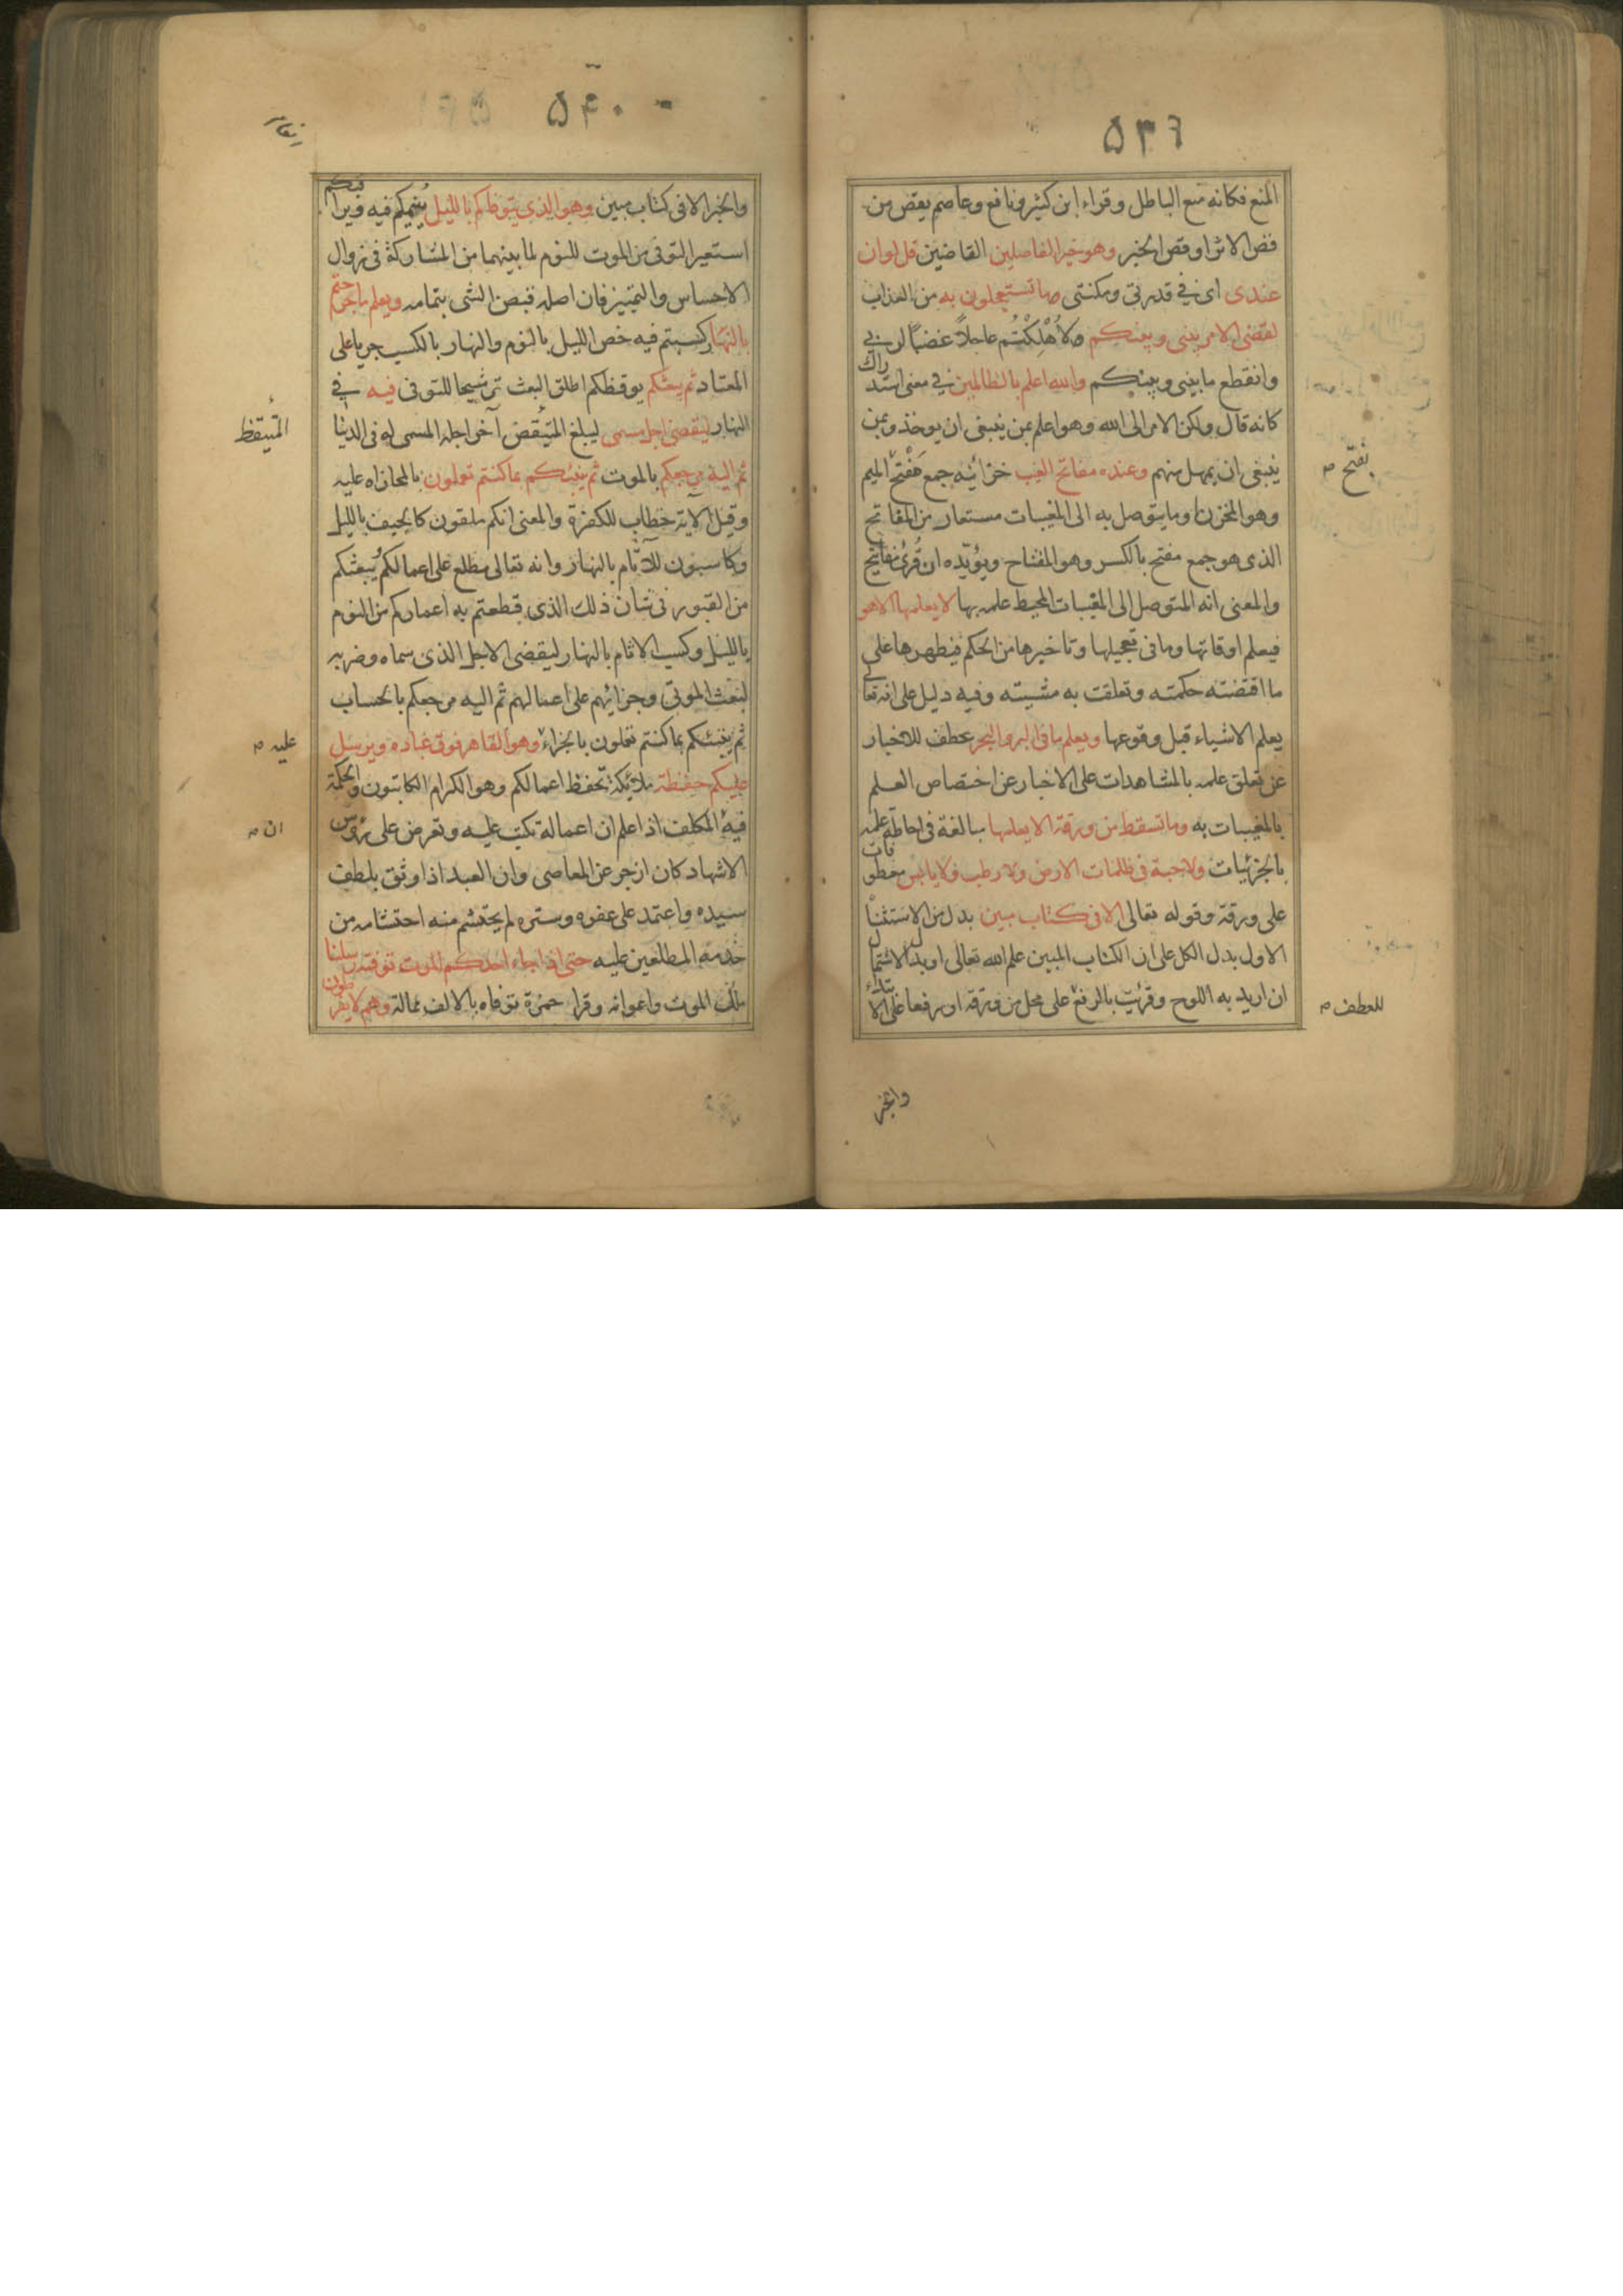 ۵۳۹
المنع فكانه منع الباطل وقراء ابن كثير ونافع وعاصم يقص من
قص الاثر او قص الخبر وهو خير الفاصلين القاضين قل لو ان
عندى اى فى قدرتى ومكنتى ما تستعجلون به من العذاب
لقضى الامر بينى وبينكم لاهلكتم عاجلا غضبا لربى
وانقطع مابينى وبينكم والله اعلم بالظالمين فى معنى استدراك
كانه قال ولكن الامر الى الله وهو اعلم بمن ينبغى ان يوخذ وبمن
ينبغى ان يمهل منهم وعنده مفاتح الغيب خزائنه جمع مفتح الميم
بفتح
وهو المخزن او ما يتوصل به الى المغيبات مستعار من المفاتح
الذى هو جمع مفتح بالكسر وهو المفتاح ويؤيده ان قرئ مفاتيح
والمعنى انه المتوصل الى المغيبات المحيط علمه بها لا يعلمها الا هو
فيعلم اوقاتها وما فى تعجيلها وتاخيرها من الحكم فيظهرها على
ما اقتضته حكمته وتعلقت به مشيته وفيه دليل على انه تعالى
يعلم الاشياء قبل وقوعها ويعلم ما فى البر والبحر عطف للاخبار
عن تعلق علمه بالمشاهدات على الاخبار عن اختصاص العلم
بالمغيبات به وما تسقط من ورقة الا يعلمها مبالغة فى احاطة علمه
بالجزئيات ولا حبة فى ظلمات الارض ولا رطب ولا يابس معطوفات
على ورقة وقوله تعالى الا فى كتاب مبين بدل من الاستثناء
الاول بدل الكل على ان الكتاب المبين علم الله تعالى او بدل الاشتمال
ان اريد به اللوح وقرئت بالرفع على محل من ورقة او رفعا على الابتداء
للعطف
والخبر
۵۴۰
والخبر الا فى كتاب مبين وهو الذى يتوفاكم بالليل ينيمكم فيه ويراقبكم
استعير التوفى من الموت للنوم لما بينهما من المشاركة فى زوال
الاحساس والتمييز فان اصله قبض الشى بتمامه ويعلم ما جرحتم
بالنهار كسبتم فيه خص الليل بالنوم والنهار بالكسب جريا على
المعتاد ثم يبعثكم يوقظكم اطلق البعث ترشيحا للتوفى فيه فى
النهار ليقضى اجل مسمى ليبلغ المتيقض آخر اجله المسمى له فى الدنيا
المتيقظ
ثم اليه مرجعكم بالموت ثم ينبئكم بما كنتم تعملون بالمجازاه عليه
وقيل الآية خطاب للكفرة والمعنى انكم ملقون كالجيف بالليل
وكاسبون للآثام بالنهار وانه تعالى مطلع على اعمالكم يبعثكم
من القبور فى شان ذلك الذى قطعتم به اعماركم من النوم
بالليل وكسب الاثام بالنهار ليقضى الاجل الذى سماه وضربه
لبعث الموتى وجزائهم على اعمالهم ثم اليه مرجعكم بالحساب
ثم ينبئكم بما كنتم تعملون بالجزاء وهو القاهر فوق عباده ويرسل
عليه
عليكم حفظة ملائكة تحفظ اعمالكم وهو الكرام الكاتبون والحكمة
فيه المكلف اذا علم ان اعماله تكتب عليه وتعرض على رؤس
ان
الاشهاد كان ازجر عن المعاصى وان العبد اذا وثق بلطف
سيده واعتمد على عفوه وستره لم يحتشم منه احتشامه من
خدمه المطلعين عليه حتى اذا جاء احدكم الموت توفته رسلنا
ملك الموت واعوانه وقرا حمزة توفاه بالالف ممالة وهم لا يفرطون